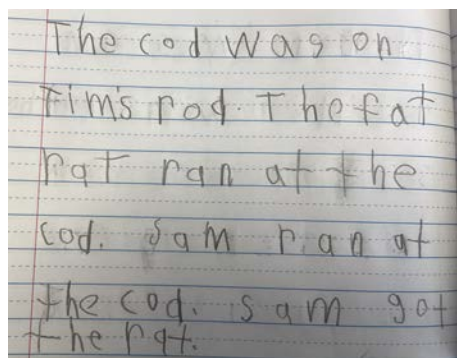 The cod was on
Tim's rod. The fat
rat ran at the
cod. Sam ran at
the cod. Sam got
the rat.